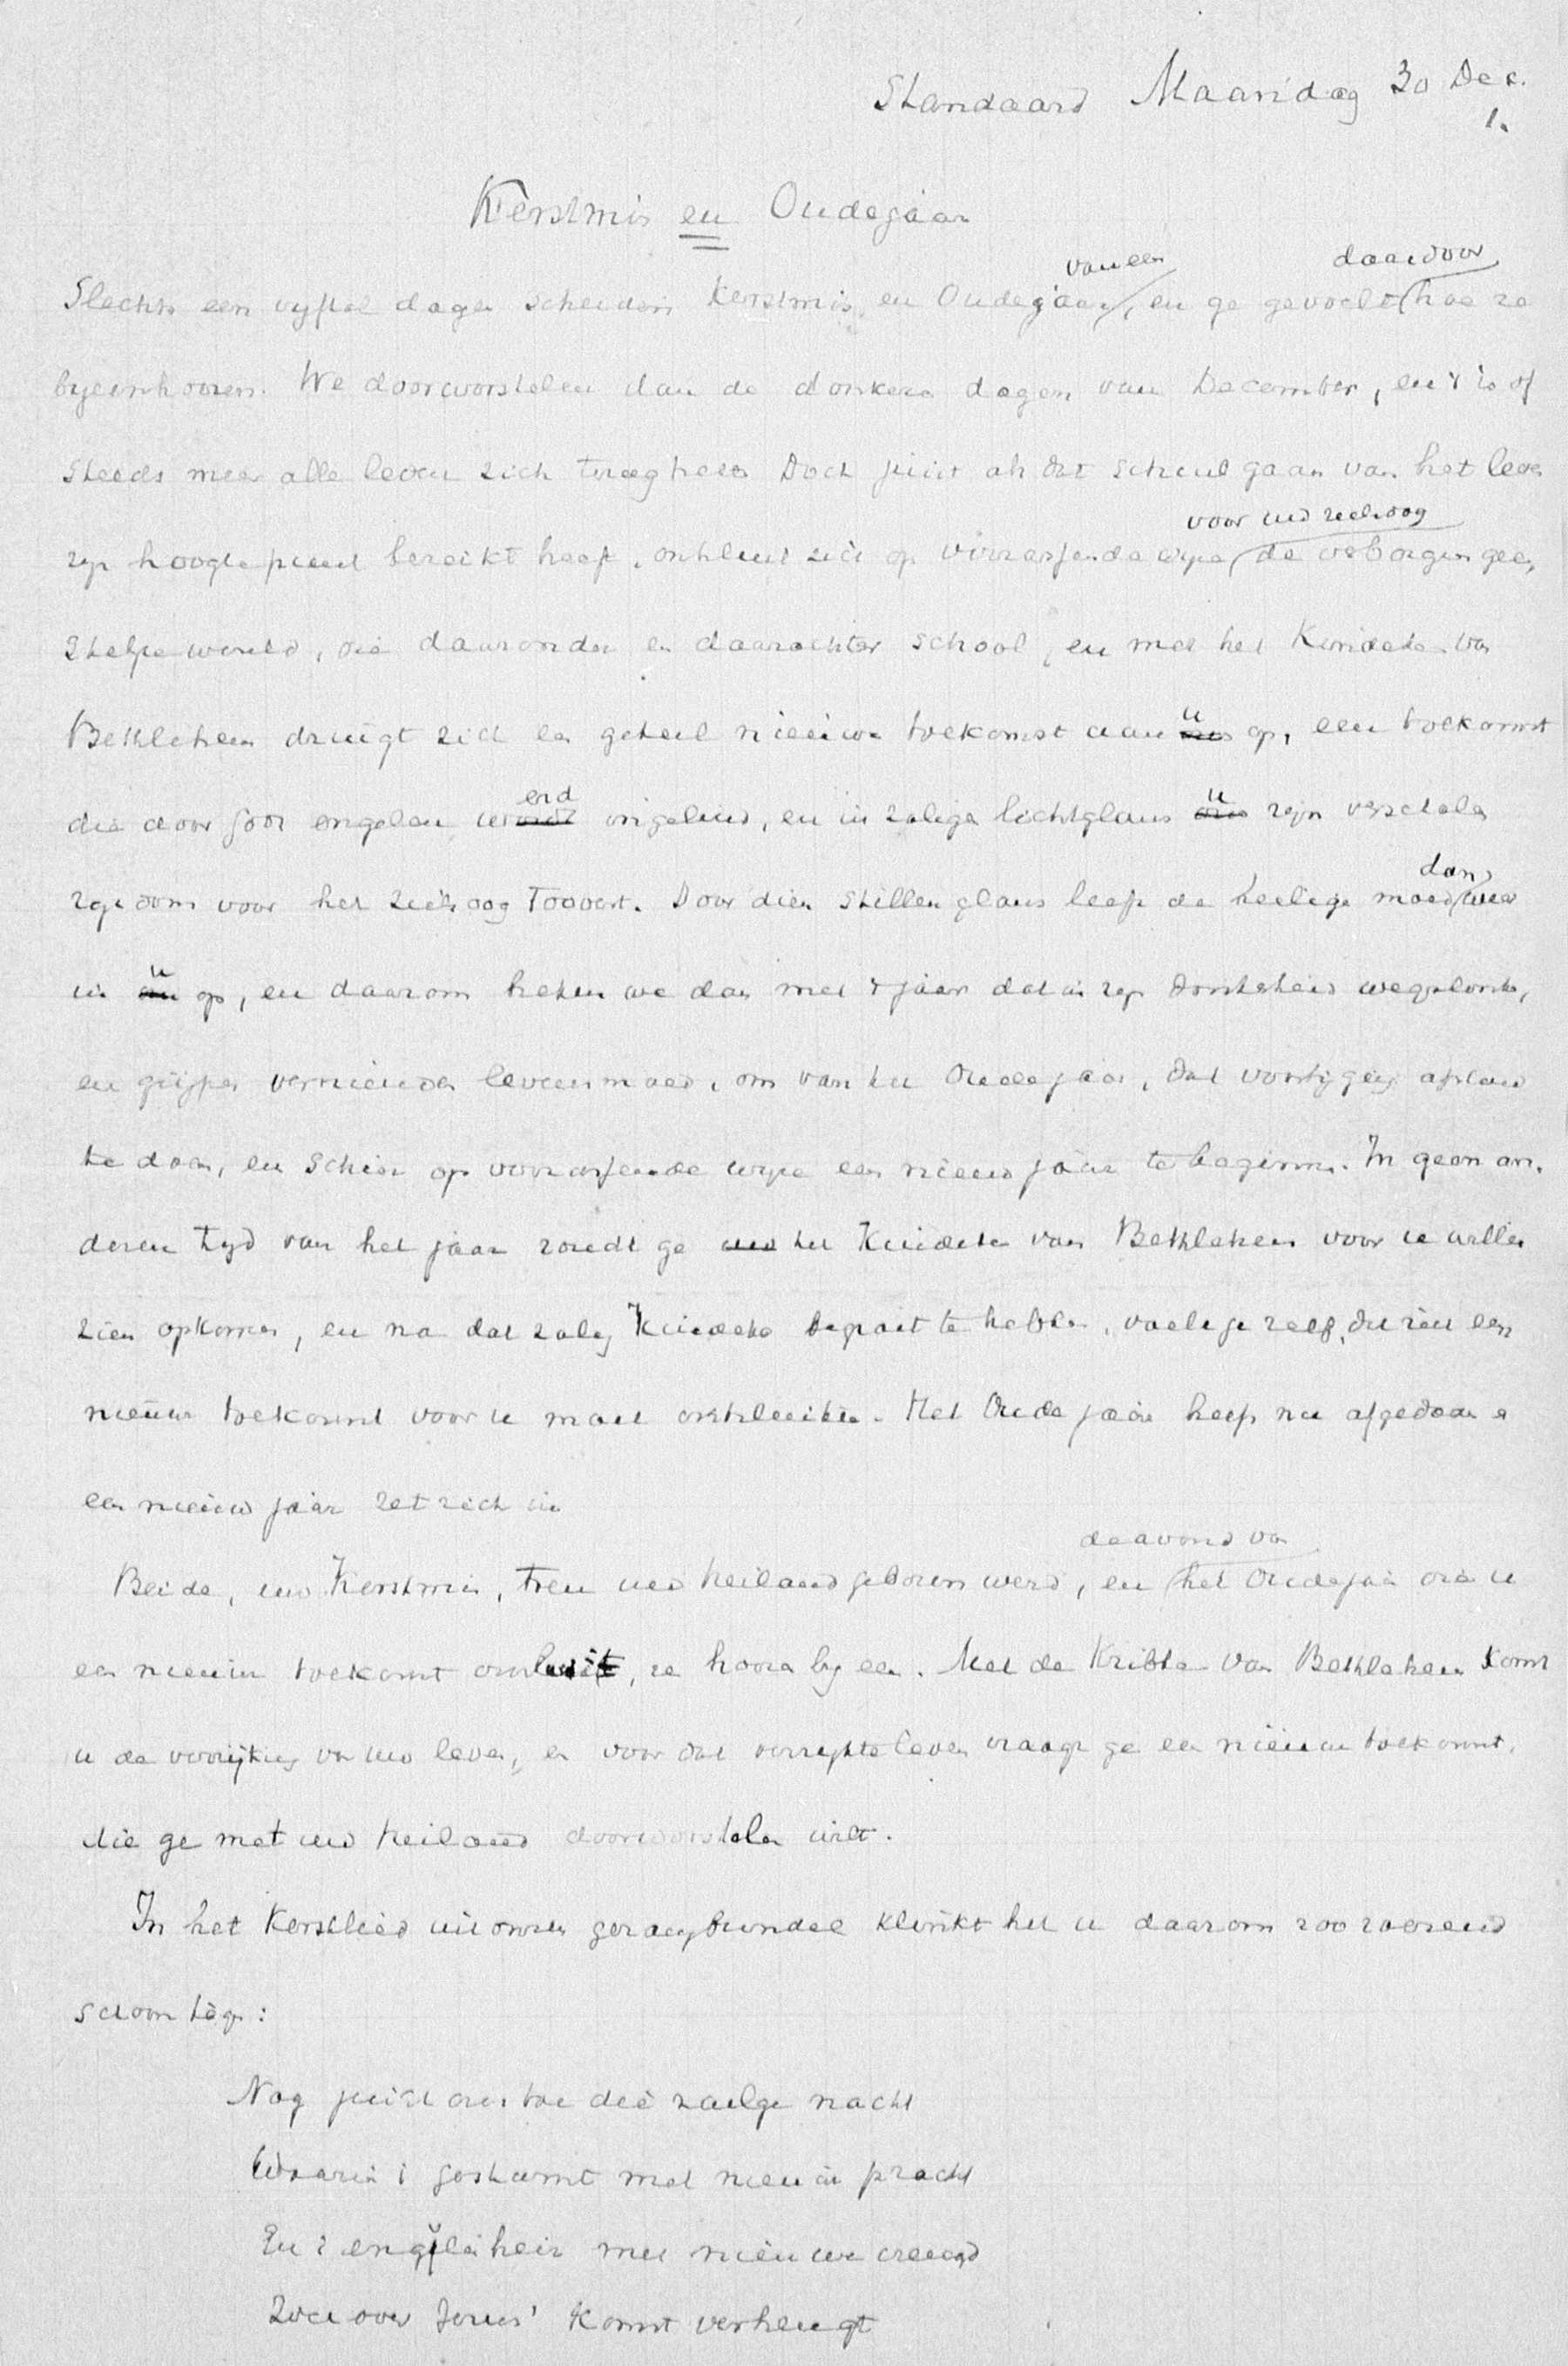 Standaard Maandag 30 Dec.
1.
Kerstmis en Oudejaar
vaneen daardoor
Slechts een vyftal dagen scheiden Kerstmis en Oudejaar, en ge gevoelt hoe ze
byeenhooren. We doorworstelen dan de donkere dagen van December, en 't is of
steeds meer alle leven zich terugtrekt. Doch juist als dat schuil gaan van het leven
voor uw zielsoog
zyn hoogtepunt bereikt heeft, ontsluit zich op verrassende wyze de verborgen gees,
telyke wereld, die daaronder en daarachter school, en met het Kindeke van
u
Bethlehem dringt zich een geheel nieuwe toekomst aan op, een toekomst
erd u
die door 's engelen w ingeluid, en in zalige lichtglans zyn
dan
voor het zielsoog toovert. Door dien stillen glans leeft de heilige moed weer
u
in op, en daarom hebben we dan met 't jaar dat in zyn donkerheid wegzonk,
en grypen vernieuwden levensmoed, om van het Oudejaar, dat voorbyging afstand
te doen, en schier op verrassende wyze een nieuw jaar te beginnen. In geen an,
deren tyd van het jaar zoudt ge het Kindeke van Bethlehem voor u willen
zien opkomen, en na dat zalig Kindeke begroet te hebben, voelt ge zelf, dat zich een
nieuwe toekomst voor u moet ontsluiten. Het Oude jaar heeft nu afgedaan en
een nieuw jaar zet zich in
de avond van
Beide, uw Kerstmis, toen uw heiland geboren werd, en het Oudejaar die u
een nieuwe toekomst ontsluit, ze hooren by een. Met de Kribbe van Bethlehem komt
u de verryking van uw leven, en voor dat verrykte leven vraagt ge een nieuwe toekomst,
die ge met uw heiland doorworstelen wilt.
In het Kerstlied uit onzen gezangbundel klinkt het u daarom zoo roerend
schoon tegen:
Nog juicht ons toe die zaelge nacht
Waarin 't gestarnt met nieuwe pracht
En 't englenheir met nieuwe vreugd
Zich over Jezus' komst verheugt